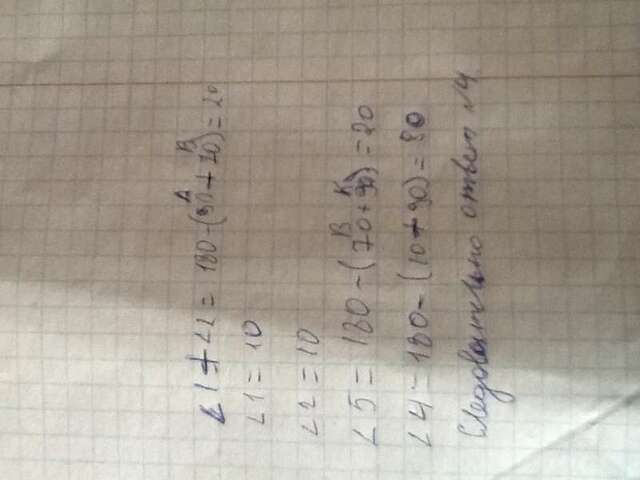 A B
∠1+∠2 = 180-(90+70)=20
∠1 = 10
∠2 = 10
B K
∠5 = 180-(70+90)=20
∠4 = 180-(10+90)=80
Следовательно ответ №4